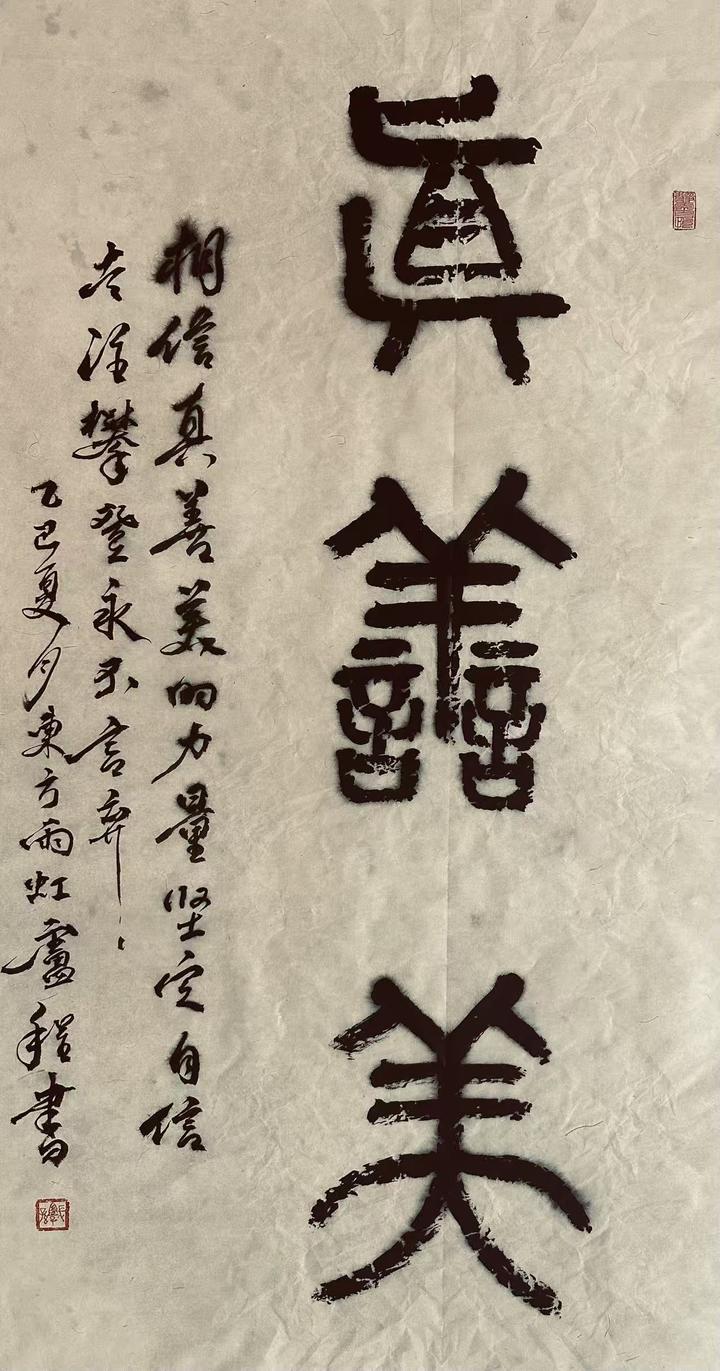 眞
譱
美
相信真善美的力量坚定自信
去注攀登永不言弃
乙巳夏月東方雨虹盧程書